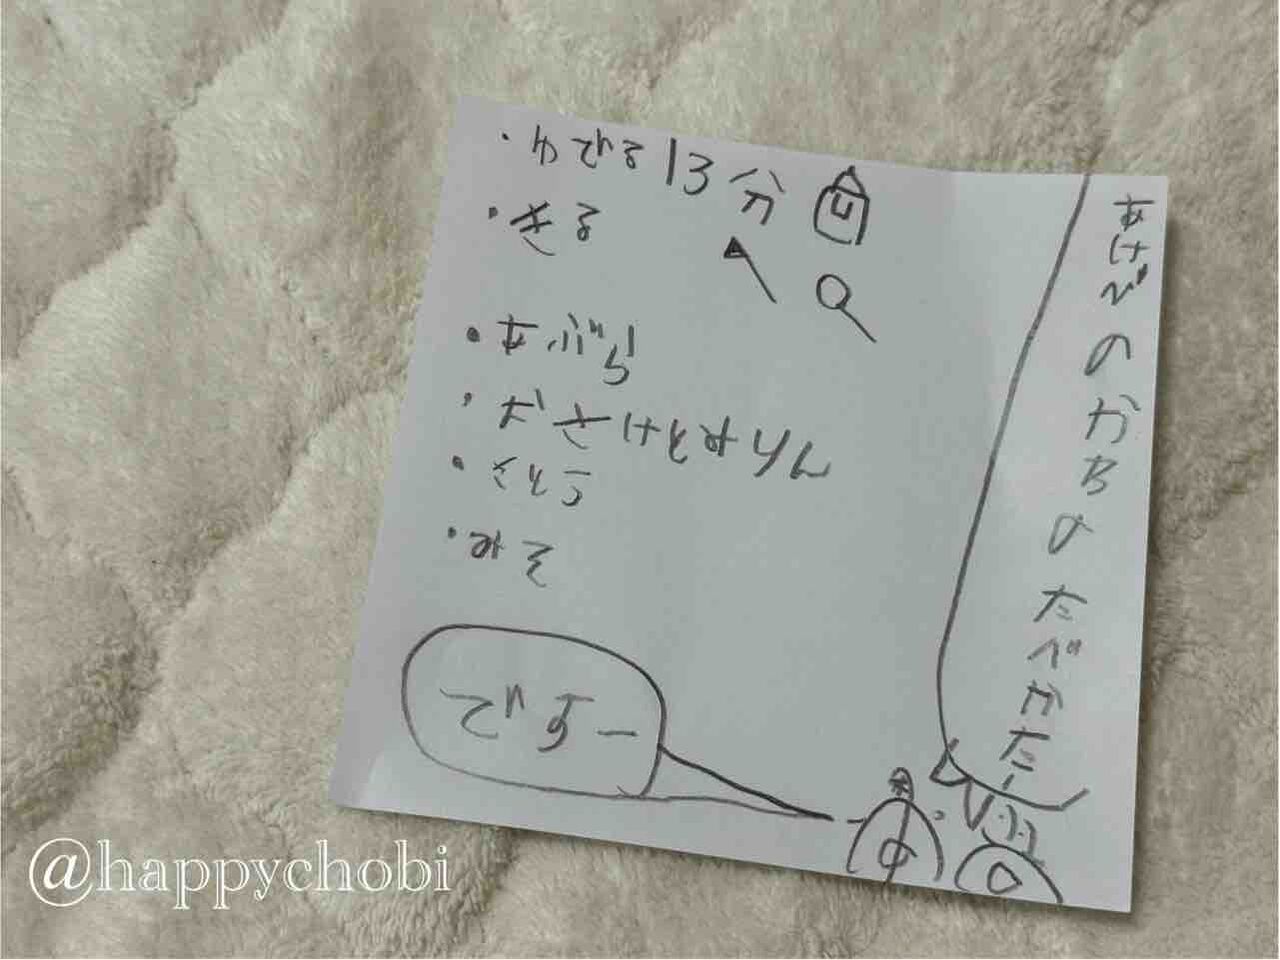 あけびのかわのたべかたー
・ゆでる13分
・きる
・あぶら
・おさけとみりん
・さとう
・みそ
ですー
@happychobi